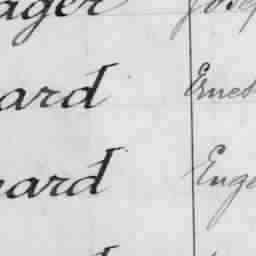 ager Josep
ard Ernest
ard Euge